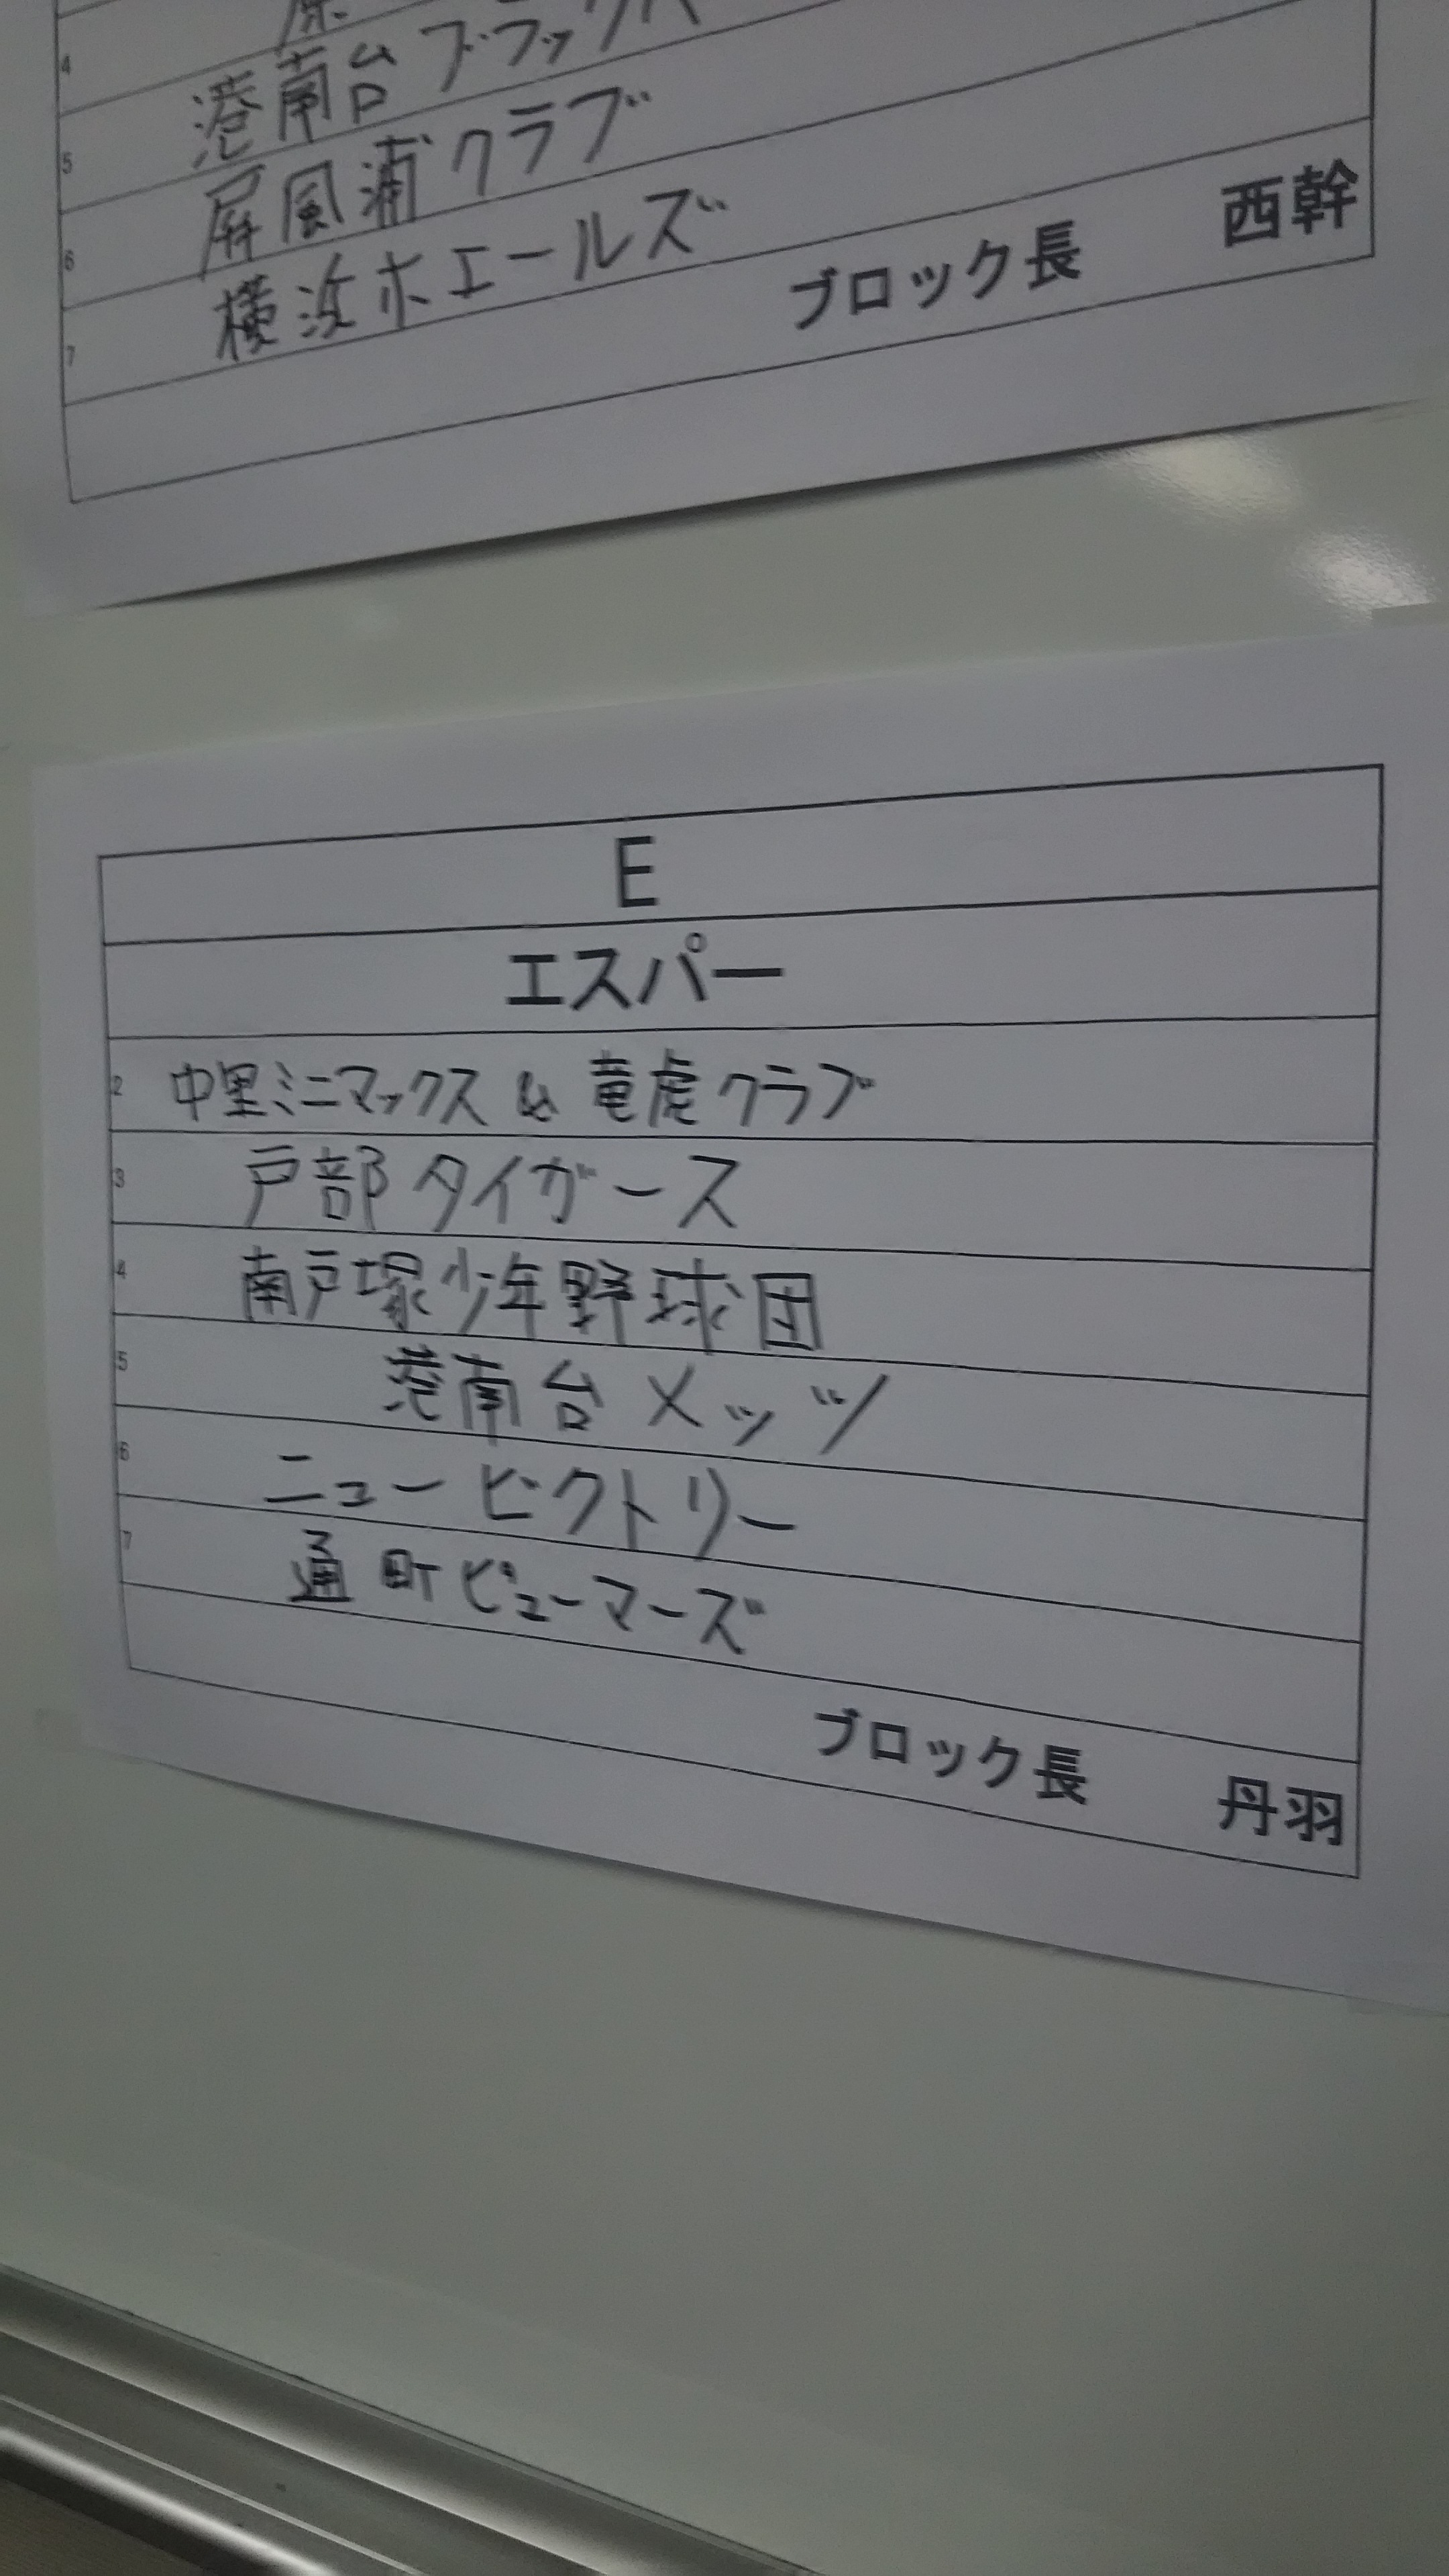 4
港南台ブラック
5
屏風浦クラブ
6
横浜ホエールズ
7
ブロック長 西幹
E
エスパー
2 中里ミニマックス & 竜虎クラブ
3 戸部タイガース
4 南戸塚少年野球団
5 港南台メッツ
6 ニュービクトリー
7 通町ピューマーズ
ブロック長 丹羽